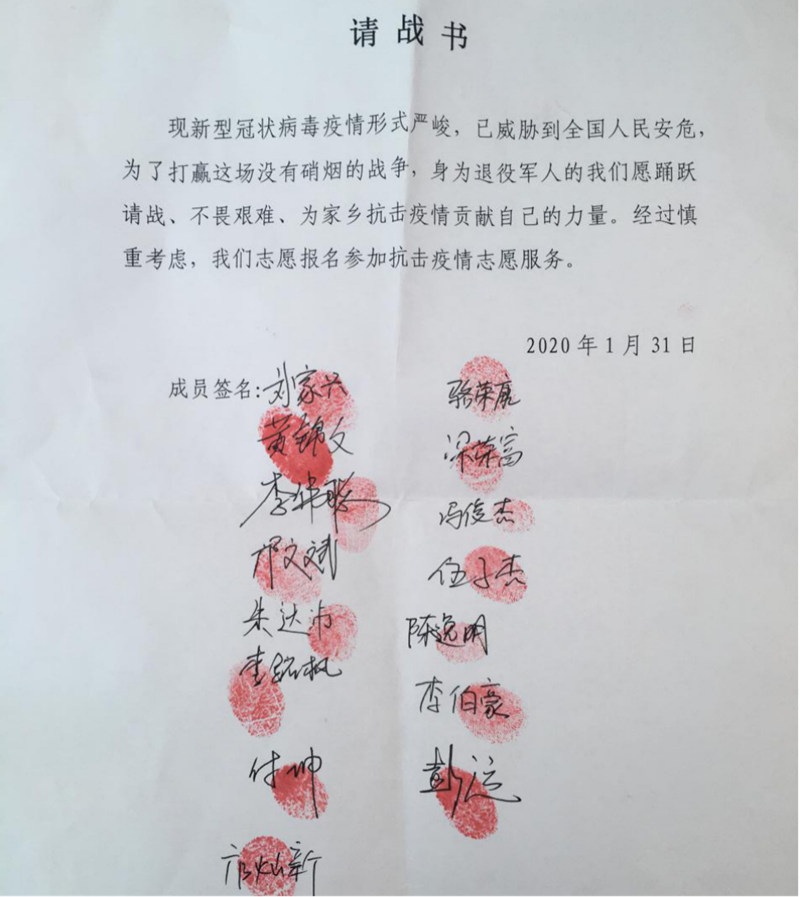 请战书
现新型冠状病毒疫情形式严峻，已威胁到全国人民安危，
为了打赢这场没有硝烟的战争，身为退役军人的我们愿踊跃
请战、不畏艰难、为家乡抗击疫情贡献自己的力量。经过慎
重考虑，我们志愿报名参加抗击疫情志愿服务。
2020年1月31日
成员签名：刘家兴 骆荣展
黄锦文 梁荣富
李华聪 冯俊杰
邝文斌 伍子杰
朱达沛 陈逸明
李 枫 李伯豪
付坤 彭运
邝灿新